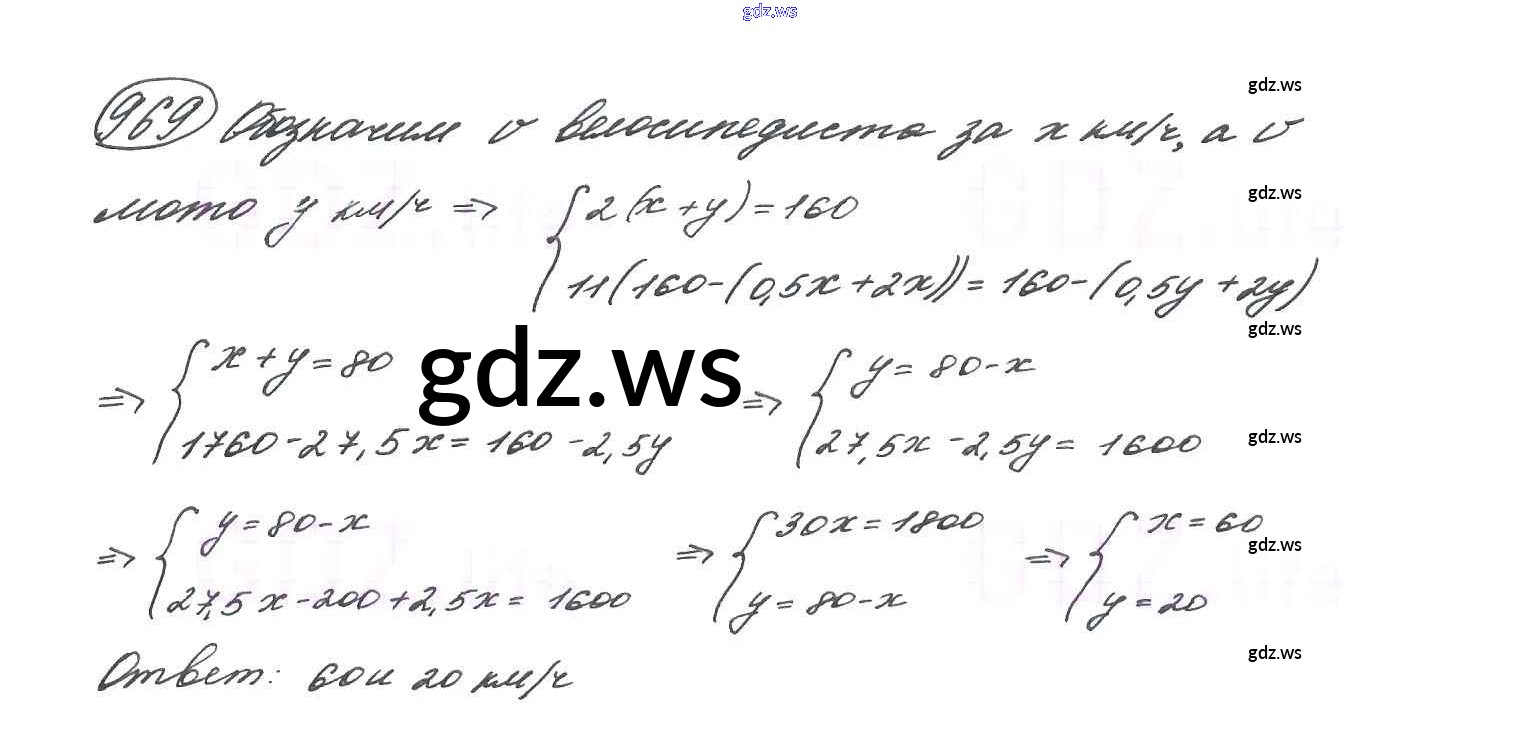 gdz.ws
gdz.ws
969 Обозначим v велосипедиста за x км/ч, а v
gdz.ws
мото y км/ч => { 2(x+y)=160
11(160-(0,5x+2x))=160-(0,5y+2y)
gdz.ws
=> { x+y=80
1760-27,5x=160-2,5y
gdz.ws
=> { y=80-x
27,5x-2,5y=1600
gdz.ws
=> { y=80-x
27,5x-200+2,5x=1600
=> { 30x=1800
y=80-x
=> { x=60
y=20
gdz.ws
gdz.ws
Ответ: 60 и 20 км/ч